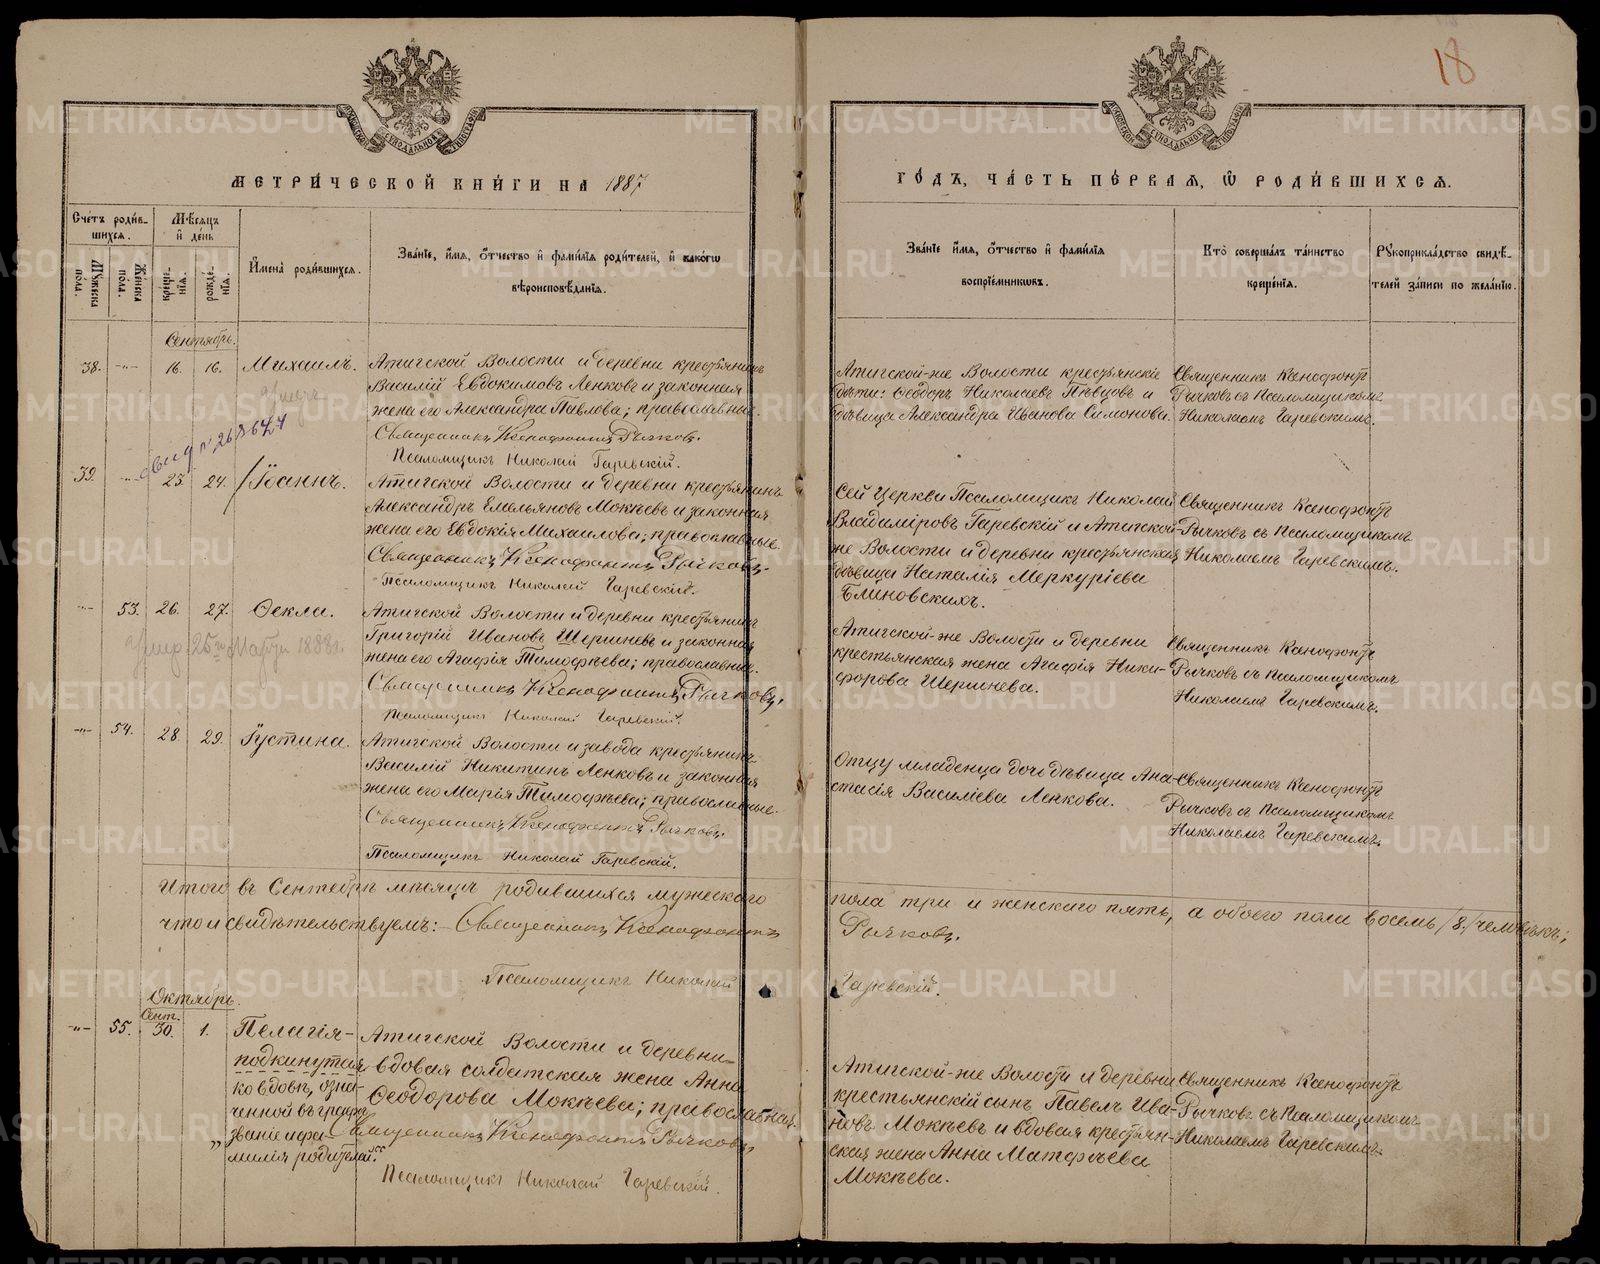 18
МЕТРИ́ЧЕСКОЙ КНИ́ГИ НА 1887
ГО́ДЪ, ЧА́СТЬ ПЕ́РВАѦ, Ѽ РОДИ́ВШИХСѦ.
Сче́тъ роди́в-
шихсѧ.
Мѣ́сѧцъ
и҆ де́нь
Мꙋжеска пола.
Женска пола.
креще-нїѧ.
рожде́-нїѧ.
И҆мена̀ роди́вшихсѧ.
Зва́нїе, и҆́мѧ, ѻ҆́тчество и҆ фами́лїѧ роди́телей, и҆ како́гѡ
вѣроисповѣ́данїѧ.
Зва́нїе и҆́мѧ, ѻ҆́тчество и҆ фами́лїѧ
воспрїе́мникѡвъ.
Кто̀ соверша́лъ та́инство
креще́нїѧ.
Рꙋкоприкла́дство свидѣ́-
телей за́писи по жела́нїю.
Сентябрь.
38. -„- 16. 16. Михаилъ.
Атигской Волости и деревни крестьянинъ
Василій Евдокимовъ Ленковъ и законная
жена его Александра Павлова; православные.
Священникъ Ксенофонтъ Рычковъ.
Псаломщикъ Николай Гаревскій.
Атигской-же Волости крестьянскіе
дѣти: Ѳеодоръ Николаевъ Пѣвцовъ и
дѣвица Александра Иванова Симонова.
Священникъ Ксенофонтъ
Рычковъ съ Псаломщикомъ
Николаемъ Гаревскимъ.
39. -„- 23. 24. Іоаннъ.
Атигской Волости и деревни крестьянинъ
Александръ Емельяновъ Мокѣевъ и законная
жена его Евдокія Михаилова; православные.
Священникъ Ксенофонтъ Рычковъ.
Псаломщикъ Николай Гаревскій.
Сей Церкви Псаломщикъ Николай
Владиміровъ Гаревскій и Атигской-
же Волости и деревни крестьянская
дѣвица Наталія Меркуріева
Блиновскихъ.
Священникъ Ксенофонтъ
Рычковъ съ Псаломщикомъ
Николаемъ Гаревскимъ.
-„- 53. 26. 27. Ѳекла.
умер. 25го Марта 1888 г.
Атигской Волости и деревни крестьянинъ
Григорій Ивановъ Шершневъ и законная
жена его Агафія Тимофѣева; православные.
Священникъ Ксенофонтъ Рычковъ.
Псаломщикъ Николай Гаревскій.
Атигской-же Волости и деревни
крестьянская жена Агафія Ники-
форова Шершнева.
Священникъ Ксенофонтъ
Рычковъ съ псаломщикомъ
Николаемъ Гаревскимъ.
-„- 54. 28. 29. Іустина.
Атигской Волости и завода крестьянинъ
Василій Никитинъ Ленковъ и законная
жена его Марія Тимофѣева; православные.
Священникъ Ксенофонтъ Рычковъ.
Псаломщикъ Николай Гаревскій.
Отцу младенца дочь дѣвица Ана-
стасія Василіева Ленкова.
Священникъ Ксенофонтъ
Рычковъ съ Псаломщикомъ
Николаемъ Гаревскимъ.
Итого въ Сентябрѣ мѣсяцѣ родившихся мужескаго
пола три и женскаго пять, а обоего пола восемь /8./ человѣкъ;
что и свидѣтельствуемъ: Священникъ Ксенофонтъ
Рычковъ.
Псаломщикъ Николай
Гаревскій.
Октябрь.
Сент.
-„- 55. 30. 1. Пелагія-
подкинутая
ко вдовѣ, озна-
ченной въ графѣ
„званіе и фа-
милія родителей."
Атигской Волости и деревни
вдовая солдатская жена Анна
Ѳеодорова Мокѣева; православная.
Священникъ Ксенофонтъ Рычковъ.
Псаломщикъ Николай Гаревскій.
Атигской-же Волости и деревни
крестьянскій сынъ Павелъ Ива-
новъ Мокѣевъ и вдовая крестьян-
ская жена Анна Матфѣева
Мокѣева.
Священникъ Ксенофонтъ
Рычковъ съ Псаломщикомъ
Николаемъ Гаревскимъ.
METRIKI.GASO-URAL.RU